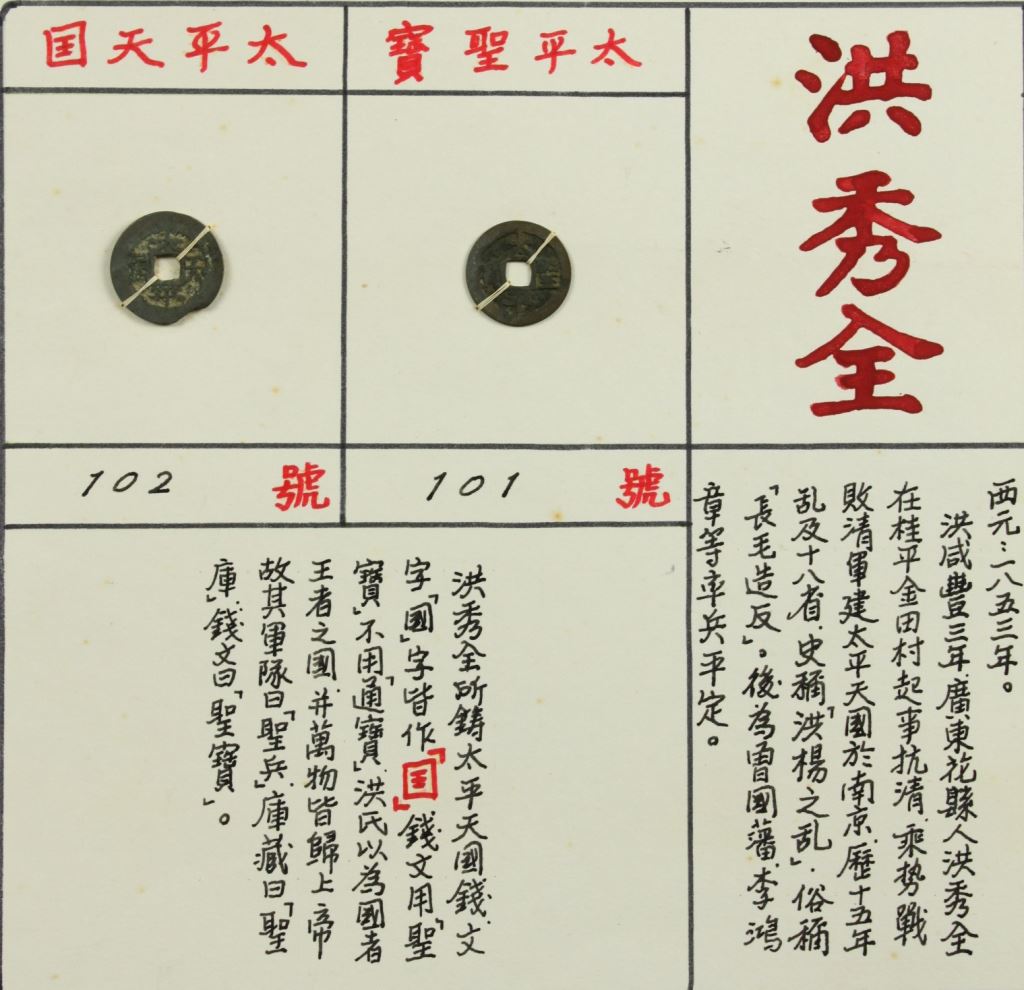 洪秀全
西元：一八五三年。
洪咸豐三年，廣東花縣人洪秀全
在桂平金田村起事抗清，乘勢戰
敗清軍建太平天國於南京，歷十五年
乱及十八省，史稱「洪楊之乱」，俗稱
「長毛造反」。後為曾國藩，李鴻
章等率兵平定。
太平聖寶
號 101
太平天囯
號 102
洪秀全所鑄太平天國錢，文
字「國」字皆作「囯」錢文用「聖
寶」不用「通寶」洪氏以為國者
王者之國，并萬物皆歸上帝
故其軍隊曰「聖兵」，庫藏曰「聖
庫」，錢文曰「聖寶」。